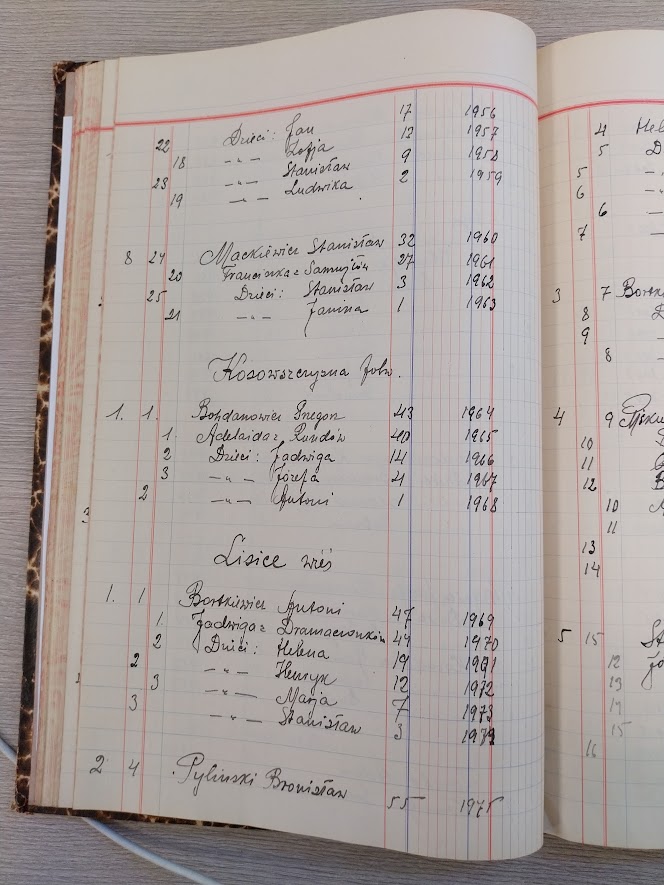 22 Dzieci: Jan 17 1956
18 -„- Zofja 12 1957
-„- Stanisław 9 1958
23 -„- Ludwika 2 1959
19
8 24 Mackiewicz Stanisław 32 1960
20 Franciszka z Samujłów 27 1961
25 Dzieci: Stanisław 3 1962
21 -„- Janina 1 1963
Kosowszczyzna folw.
1. 1. Bohdanowicz Gregor 43 1964
1 Adelaida z Rundów 40 1965
2 Dzieci: Jadwiga 14 1966
3 -„- Józefa 4 1967
2 -„- Antoni 1 1968
3
Lisice wieś
1. 1 Bortkiewicz Antoni 47 1969
1. Jadwiga z 44 1970
2 Dzieci: Helena 19 1971
2 -„- Henryk 12 1972
3 -„- Marja 7 1973
3 -„- Stanisław 3 1974
2 4 Pyliński Bronisław 55 1975
4 Hel
5 D
5 -„
6 -„
6
7
3 7 Bortk
8
9
8
4 9
10
11
12
10
11
13
14
5 15 St
12 Jo
13
14
15
16